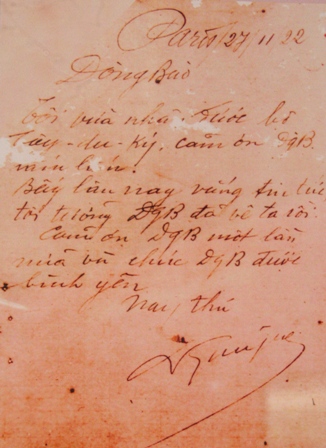 Paris 27/11/22
Đồng Bào
Tôi vừa nhận được bộ
Tây-du-Ký, cảm ơn ĐgB.
Bấy lâu nay vắng tin tức
tôi tưởng ĐgB đã về ta rồi.
Cảm ơn ĐgB một lần
nữa và chúc ĐgB được
bình yên
Nay thứ